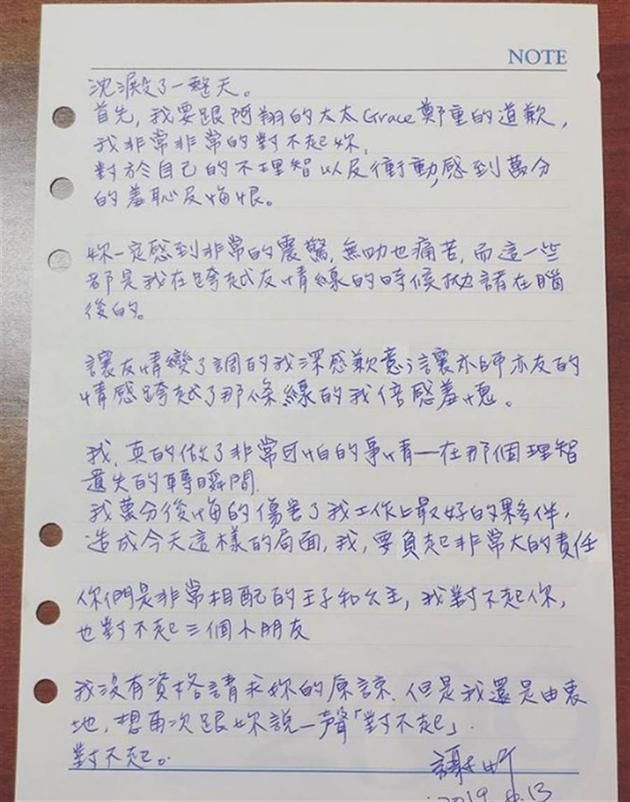 NOTE
沈澱了一整天。
首先,我要跟阿翔的太太Grace鄭重的道歉,
我非常非常的對不起妳,
對於自己的不理智以及衝動,感到萬分
的羞恥及悔恨。
妳一定感到非常的震驚,無助也痛苦,而這一些
都是我在跨越友情線的時候拋諸在腦
後的。
讓友情變了調的我深感歉意;讓亦師亦友的
情感跨越了那條線的我倍感羞愧。
我,真的做了非常可怕的事情—在那個理智
遺失的轉瞬間.
我萬分後悔的傷害了我工作上最好的夥伴,
造成今天這樣的局面,我,要負起非常大的責任
你們是非常相配的王子和公主,我對不起你,
也對不起三個小朋友
我沒有資格請求妳的原諒.但是我還是由衷
地,想再次跟妳說一聲「對不起」.
對不起。
2019